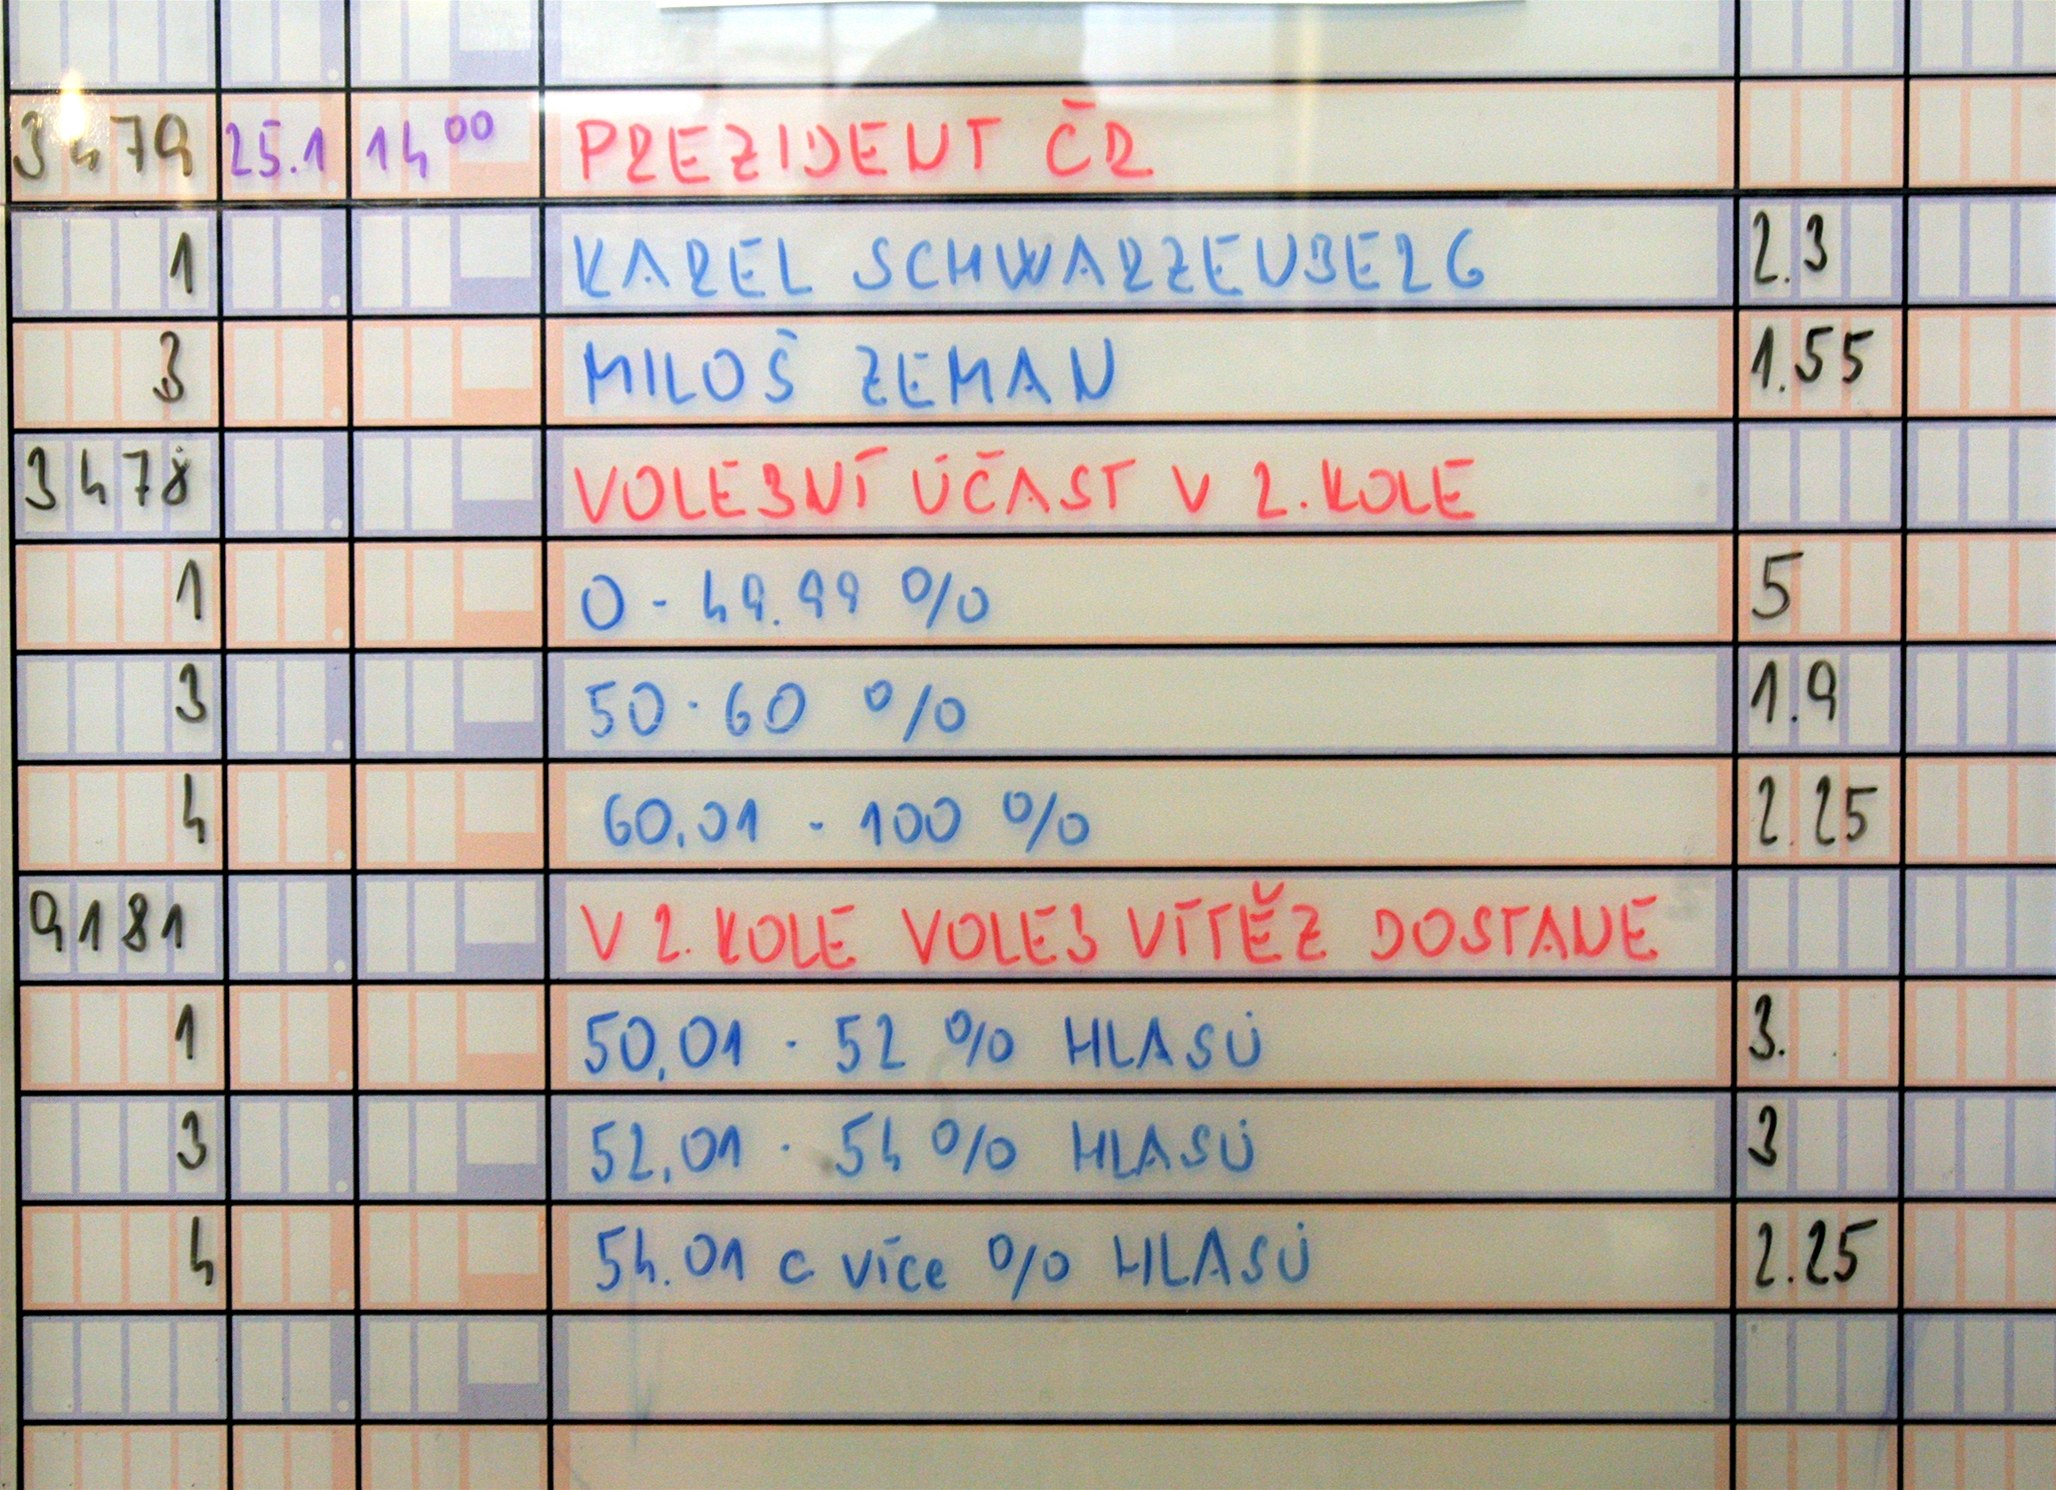 3479 25.1 14⁰⁰ PREZIDENT ČR
1 KAREL SCHWARZENBERG 2.3
3 MILOŠ ZEMAN 1.55
3478 VOLEBNÍ ÚČAST V 2. KOLE
1 0 - 49.99 % 5
3 50 - 60 % 1.9
4 60,01 - 100 % 2.25
9181 V 2. KOLE VOLEB VÍTĚZ DOSTANE
1 50,01 - 52 % HLASŮ 3.
3 52,01 - 54 % HLASŮ 3
4 54.01 a více % HLASŮ 2.25